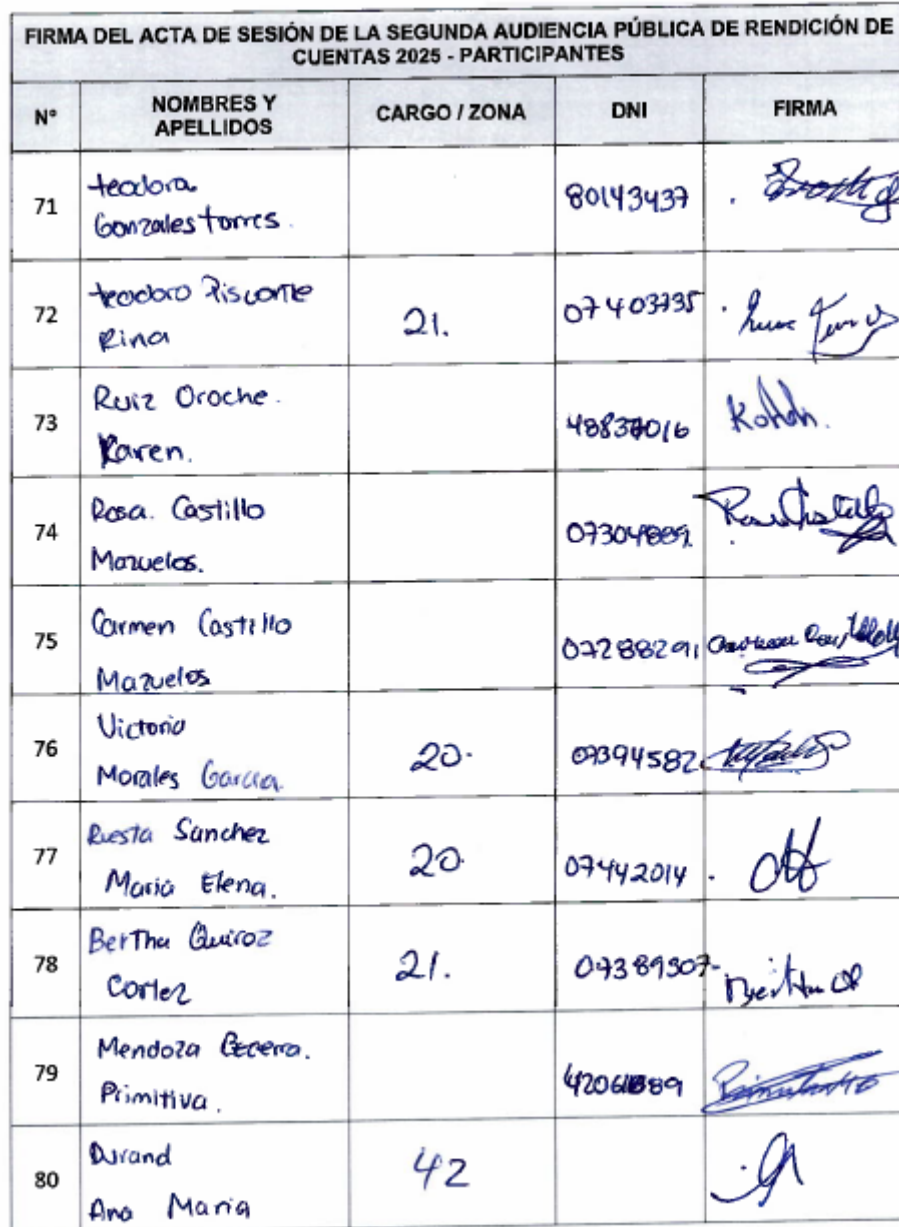 FIRMA DEL ACTA DE SESIÓN DE LA SEGUNDA AUDIENCIA PÚBLICA DE RENDICIÓN DE
CUENTAS 2025 - PARTICIPANTES
N° NOMBRES Y APELLIDOS CARGO / ZONA DNI FIRMA
71 teodora Gonzales torres. 80143437
72 teodoro Pisconte Rina 21. 07403735
73 Ruiz Oroche. Karen.
74 Rosa. Castillo Mazuelos.
75 Carmen Castillo Mazuelos 07288291
76 Victoria Morales Garcia. 20. 07394582
77 Ruesta Sanchez Maria Elena. 20. 07442014
78 Bertha Quiroz Cortez 21. 07389507
79 Mendoza Becerra. Primitiva.
80 Durand Ana Maria 42